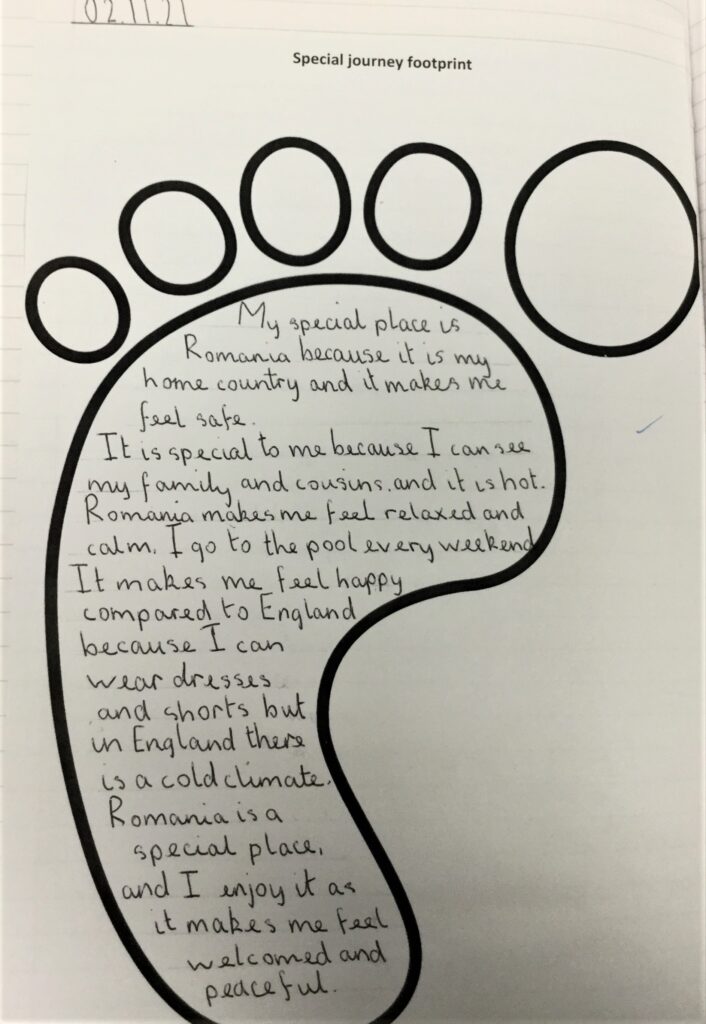 02.11.21
Special journey footprint
My special place is
Romania because it is my
home country and it makes me
feel safe.
It is special to me because I can see
my family and cousins. and it is hot.
Romania makes me feel relaxed and
calm. I go to the pool every weekend
It makes me feel happy
compared to England
because I can
wear dresses
and shorts but
in England there
is a cold climate.
Romania is a
special place,
and I enjoy it as
it makes me feel
welcomed and
peaceful.